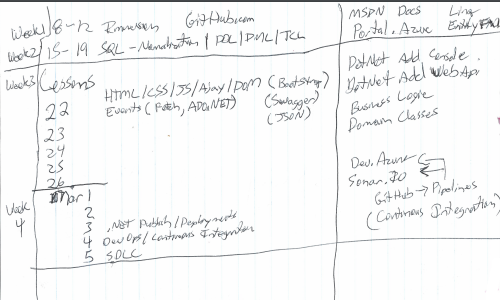 Week1 8-12 GitHub.com
Week2 15-19 SQL - Normalization / DDL/DML/TCL
Week3 Lessons
HTML/CSS/JS/Ajax/DOM (Bootstrap)
22 Events (Fetch, ADO.NET) (Swagger)
(JSON)
23
24
25
26
Week 4
Mar 1
2
3 .Net Publish/Deployments
4 DevOps/Continuous Integration
5 SDLC
MSDN Docs Linq
Portal.Azure Entity
DotNet Add Console
DotNet Add WebApi
Business Logic
Domain Classes
Dev.Azure
Sonar.IO
GitHub → Pipelines
(Continuous Integration)